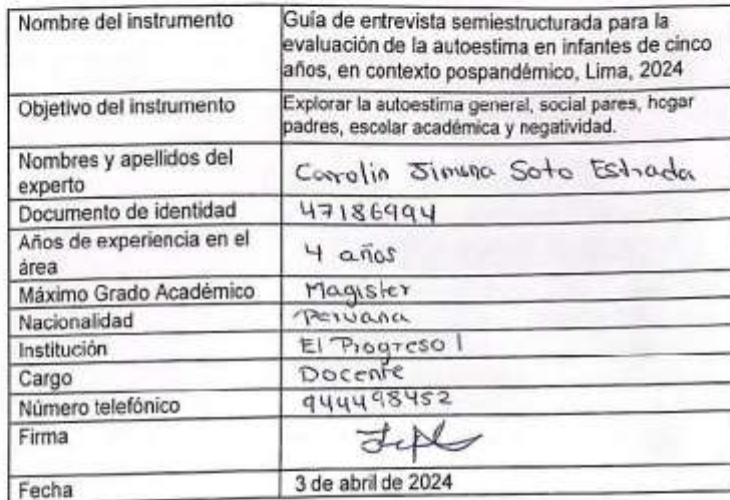 Nombre del instrumento
Guía de entrevista semiestructurada para la
evaluación de la autoestima en infantes de cinco
años, en contexto pospandémico, Lima, 2024
Objetivo del instrumento
Explorar la autoestima general, social pares, hogar
padres, escolar académica y negatividad.
Nombres y apellidos del
experto
Carolin Jimena Soto Estrada
Documento de identidad
47186994
Años de experiencia en el
área
4 años
Máximo Grado Académico
Magister
Nacionalidad
Peruana
Institución
El Progreso 1
Cargo
Docente
Número telefónico
944498452
Firma
Fecha
3 de abril de 2024